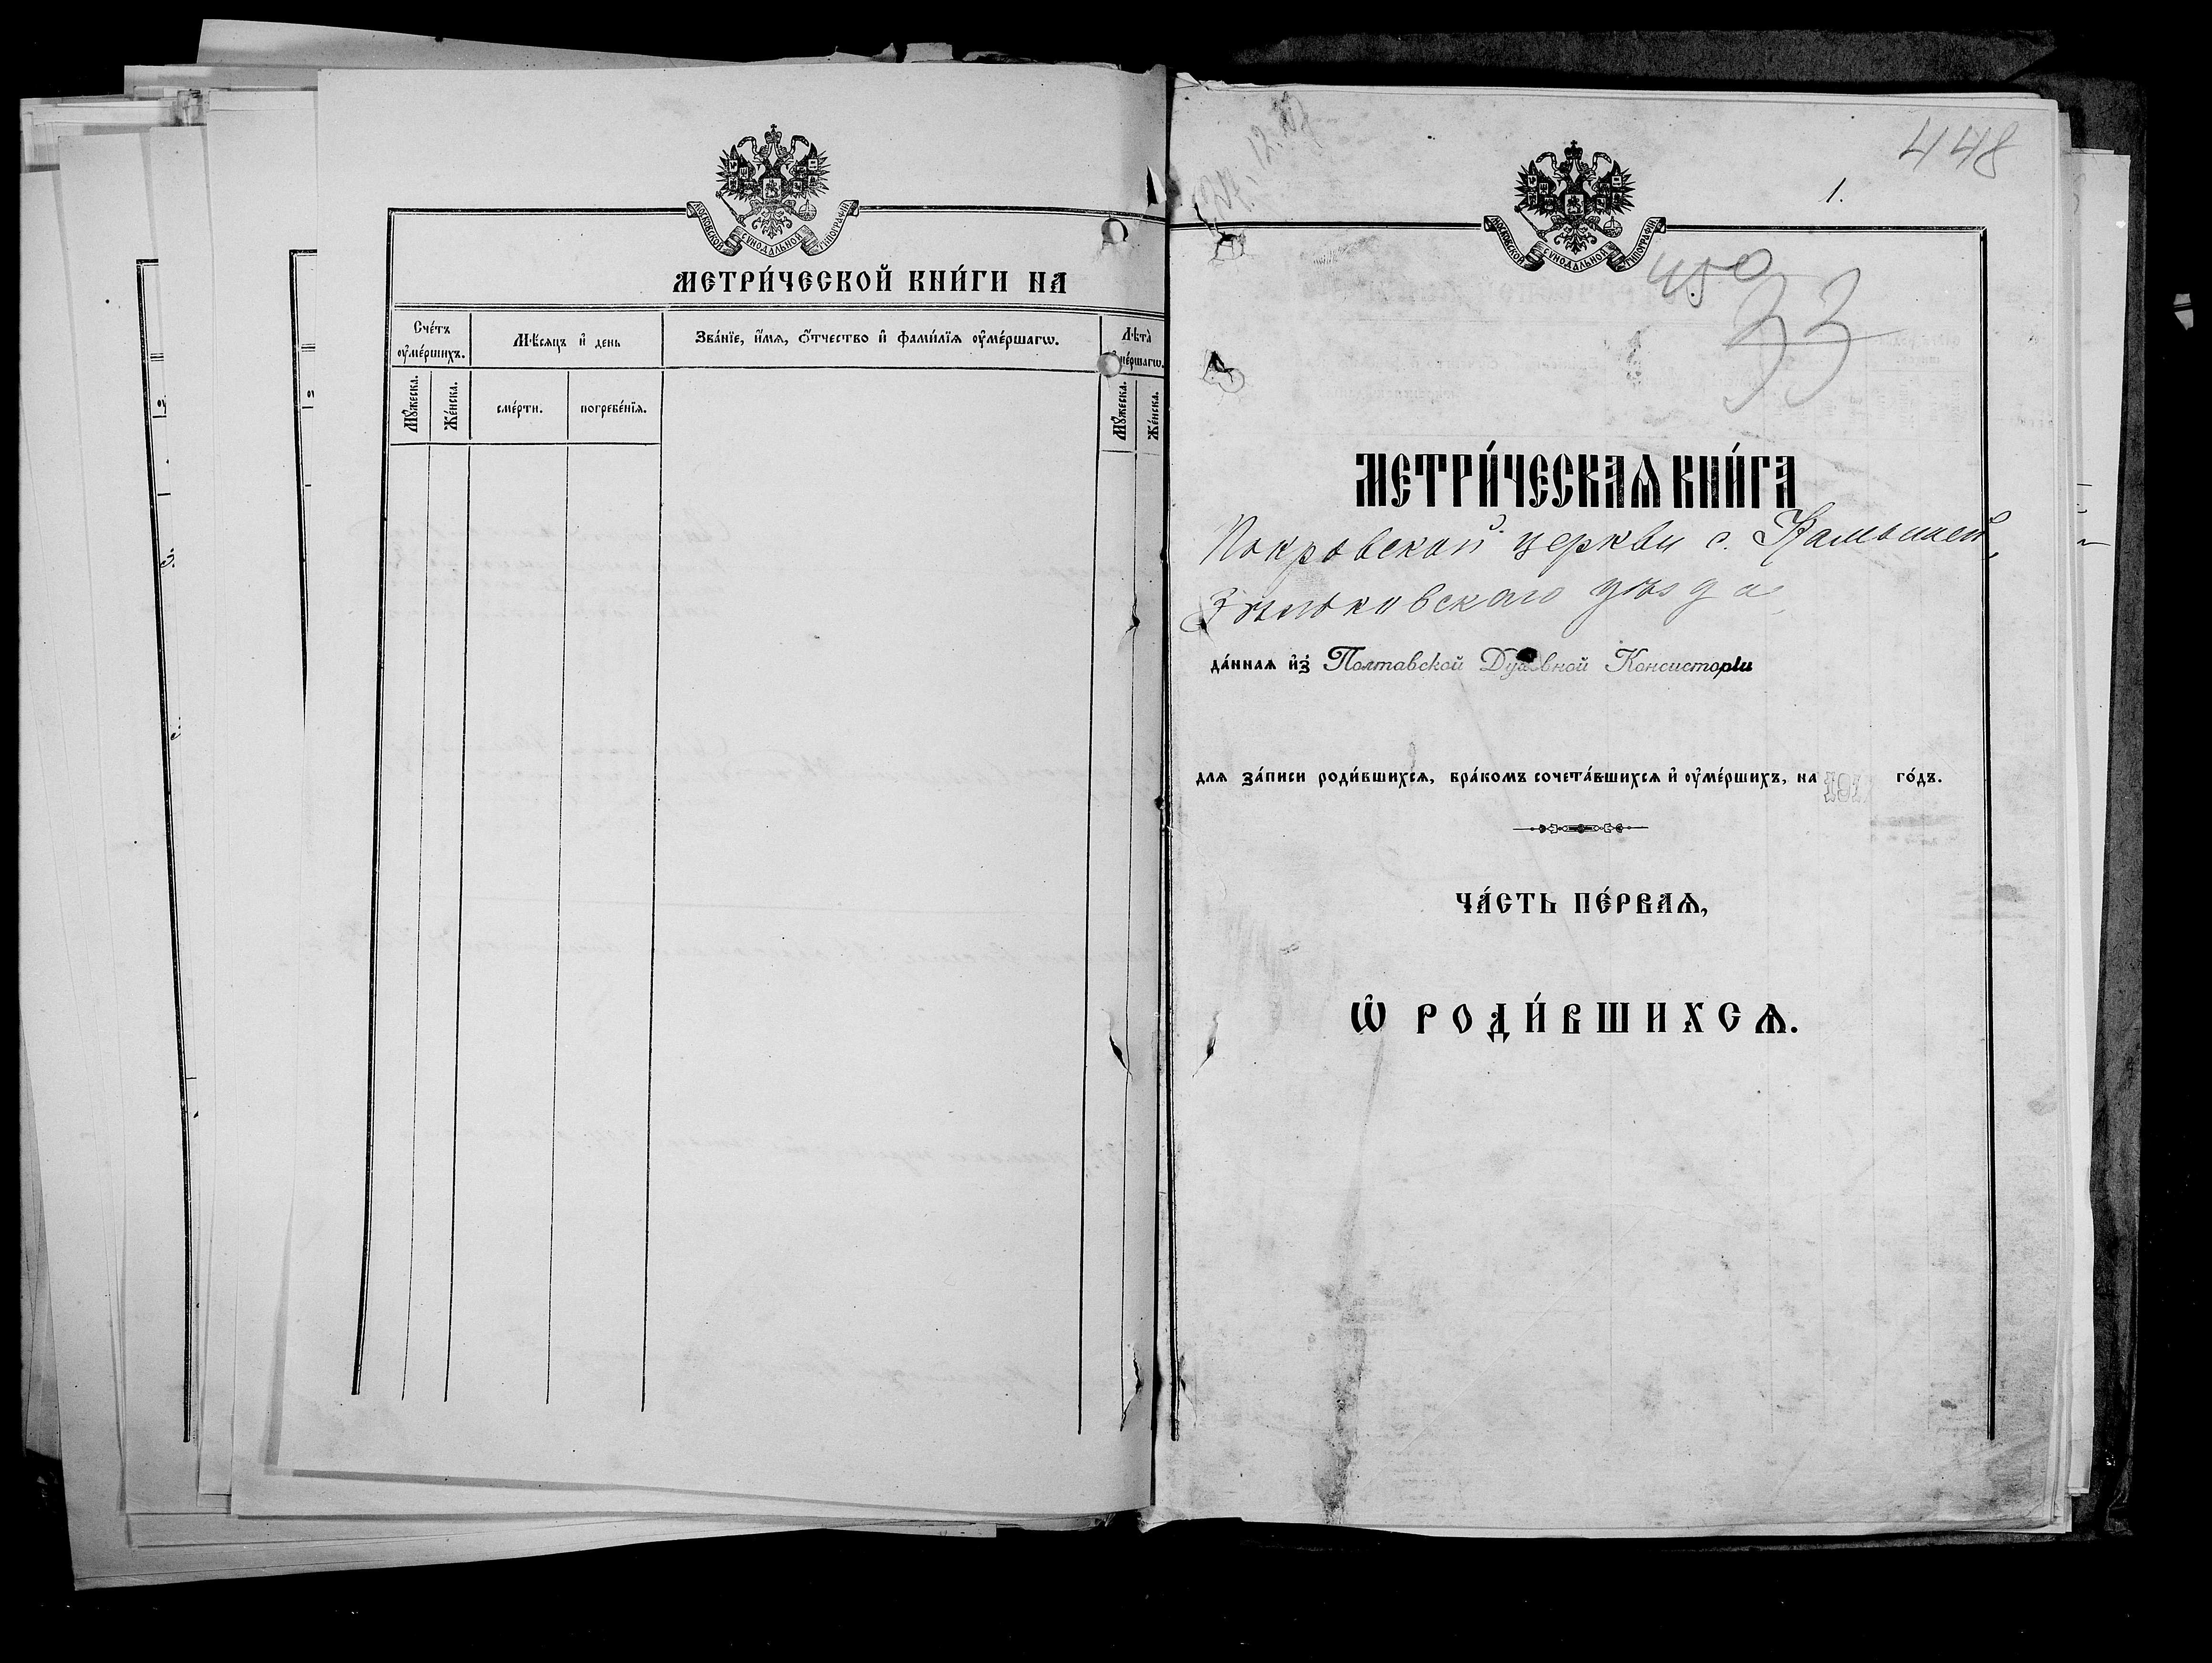 МОСКОВСКОЙ СУНОДАЛЬНОЙ ТИПОГРАФИИ
МЕТРИ́ЧЕСКОЙ КНИ́ГИ НА
Сче́тъ оу҆ме́ршихъ.
Мѣ́сяцъ и҆ день
Зва́нїе, и҆́мя, ѻ҆́тчество и҆ фами́лїя оу҆ме́ршагѡ.
Лѣта̀ оу҆ме́ршагѡ.
Мꙋ́жеска.
Же́нска.
сме́рти.
погребе́нїя.
Мꙋ́жеска.
Же́нска.
448
1.
МОСКОВСКОЙ СУНОДАЛЬНОЙ ТИПОГРАФИИ
450
33
МЕТРИ́ЧЕСКАѦ КНИ́ГА
Покровской церкви с. Камышей,
Зѣньковскаго уѣзда
да́нная и҆з̾ Полтавской Духовной Консисторіи
для за́писи роди́вшихся, бра́комъ сочета́вшихся и҆ оу҆ме́ршихъ, на 191 го́дъ.
ЧА́СТЬ ПЕ́РВАѦ,
Ѡ҆ РОДИ́ВШИХСѦ.